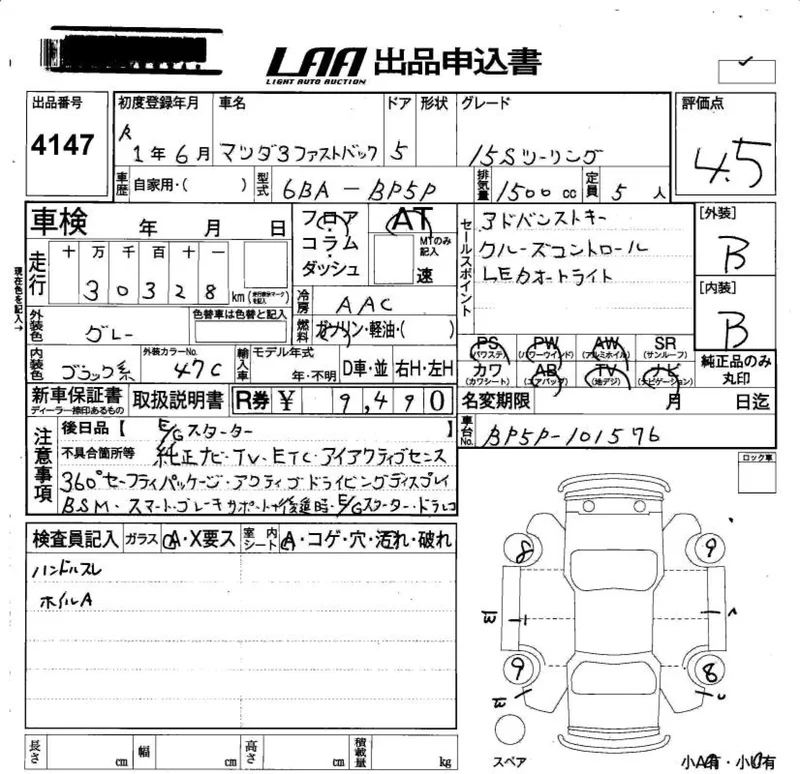 LAA 出品申込書
LIGHT AUTO AUCTION
出品番号 初度登録年月 車名 ドア 形状 グレード 評価点
4147 R 1年6月 マツダ3ファストバック 5 15Sツーリング 4.5
車歴 自家用・( ) 型式 6BA-BP5P 排気量 1500cc 定員 5人
車検 年 月 日
フロア・コラム・ダッシュ AT MTのみ記入 速
セールスポイント
アドバンストキー
クルーズコントロール
LEDオートライト
[外装]
B
[内装]
B
現在色を記入→
走行 十 万 千 百 十 一
30328 km (走行表示マークを記入)
冷房 AAC
燃料 ガソリン・軽油・( )
外装色 グレー 色替車は色替と記入
PS (パワステ) PW (パワーウインド) AW (アルミホイル) SR (サンルーフ)
カワ (カワシート) AB (エアバッグ) TV (地デジ) ナビ (ナビゲーション)
純正品のみ丸印
内装色 ブラック系 外装カラーNo. 47C 輸入車 モデル年式 年・不明 D車・並 右H・左H
新車保証書 ディーラー捺印あるもの 取扱説明書 R券 ¥ 9,490
名変期限 月 日迄
車台No. BP5P-101576
注意事項
後日品【 E/Gスターター 】
不具合箇所等 純正ナビ・TV・ETC・アイアクティブセンス
360°セーフティパッケージ・アクティブドライビングディスプレイ
BSM・スマートブレーキサポート(後進時・E/Gスターター・ドラレコ
ロック車
検査員記入 ガラス A・X要ス 室内シート A・コゲ・穴・汚れ・破れ
ハンドルスレ
ホイルA
8 9
W
9 8
W
スペア
小A有・小U有
長さ cm 幅 cm 高さ cm 積載量 kg